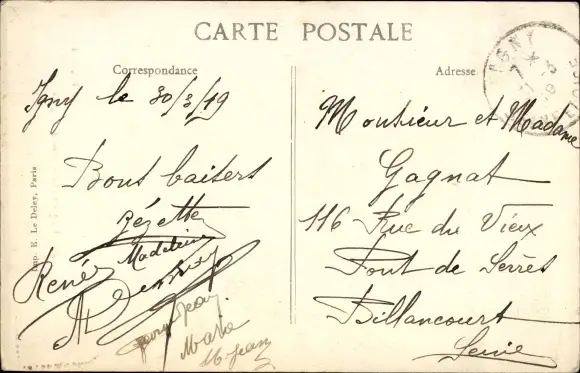 CARTE POSTALE
Correspondance
Adresse
Igny le 30/3/19
Bons baisers
Zézette
Madeleine
René
Jean
Maria
M Jean
Monsieur et Madame
Gagnat
116 Rue du Vieux
Pont de Sèvres
Billancourt
Seine
IGNY
Imp. E. Le Deley, Paris